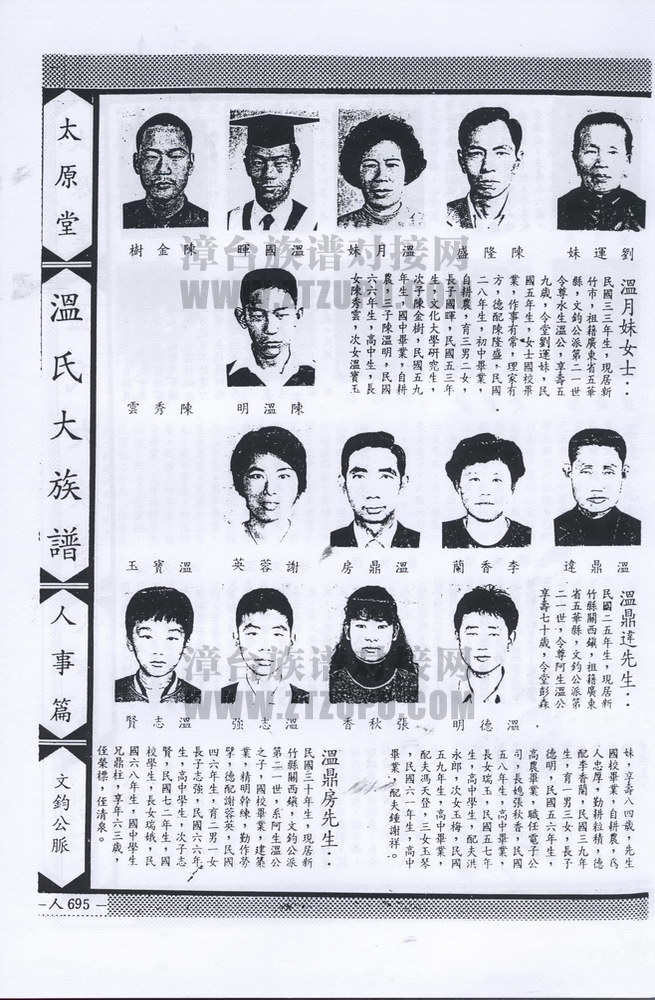 太原堂
溫氏大族譜
人事篇
文鈞公脈
－人695－
樹金陳
暉國溫
妹月溫
盛隆陳
妹運劉
溫月妹女士：
民國三三年生，現居新
竹市，祖籍廣東省五華
縣，文鈞公派第二一世
令尊水生溫公，享壽五
九歲，令堂劉運妹，民
國五年生，女士國校畢
業，作事有常，理家有
方，德配陳隆盛，民國
二八年生，初中畢業，
自耕農，育三男二女，
長子國暉，民國五三年
生，文化大學研究生，
次子陳金樹，民國五九
年生，國中畢業，自耕
農，三子陳溫明，民國
六六年生，高中生，長
女陳秀雲，次女溫寶玉
雲秀陳
明溫陳
玉寶溫
英蓉謝
房鼎溫
蘭香李
達鼎溫
溫鼎達先生：
民國二五年生，現居新
竹縣關西鎮，祖籍廣東
省五華縣，文鈞公派第
二一世，令尊阿生溫公
享壽七十歲，令堂彭森
賢志溫
強志溫
香秋張
明德溫
妹，享壽八四歲，先生
國校畢業，自耕農，為
人忠厚，勤耕粒積，德
配李香蘭，民國三九年
生，育一男三女，長子
德明，民國五六年生，
高農畢業，職任電子公
司，長媳張秋香，民國
五八年生，高中畢業，
長女瑞玉，民國五七年
生，高中生，配夫洪
永郎，次女玉梅，民國
五九年生，高中畢業，
配夫馮天登，三女玉琴
，民國六一年生，高中
畢業，配夫鍾謝祥。
溫鼎房先生：
民國三十年生，現居新
竹縣關西鎮，文鈞公派
第二一世，系阿生溫公
之子，國校畢業，建築
業，精明幹練，勤作勞
擘，德配謝蓉英，民國
四六年生，育二男一女
長子志強，民國六六年
生，高中生，次子志
賢，民國七二年生，國
校學生，長女瑞娥，民
國六八年生，國中學生
兄鼎柱，享年六三歲，
侄榮標，侄清泉。
漳台族谱对接网
WWW.ZTZUPU.COM
漳台族谱对接网
WWW.ZTZUPU.COM